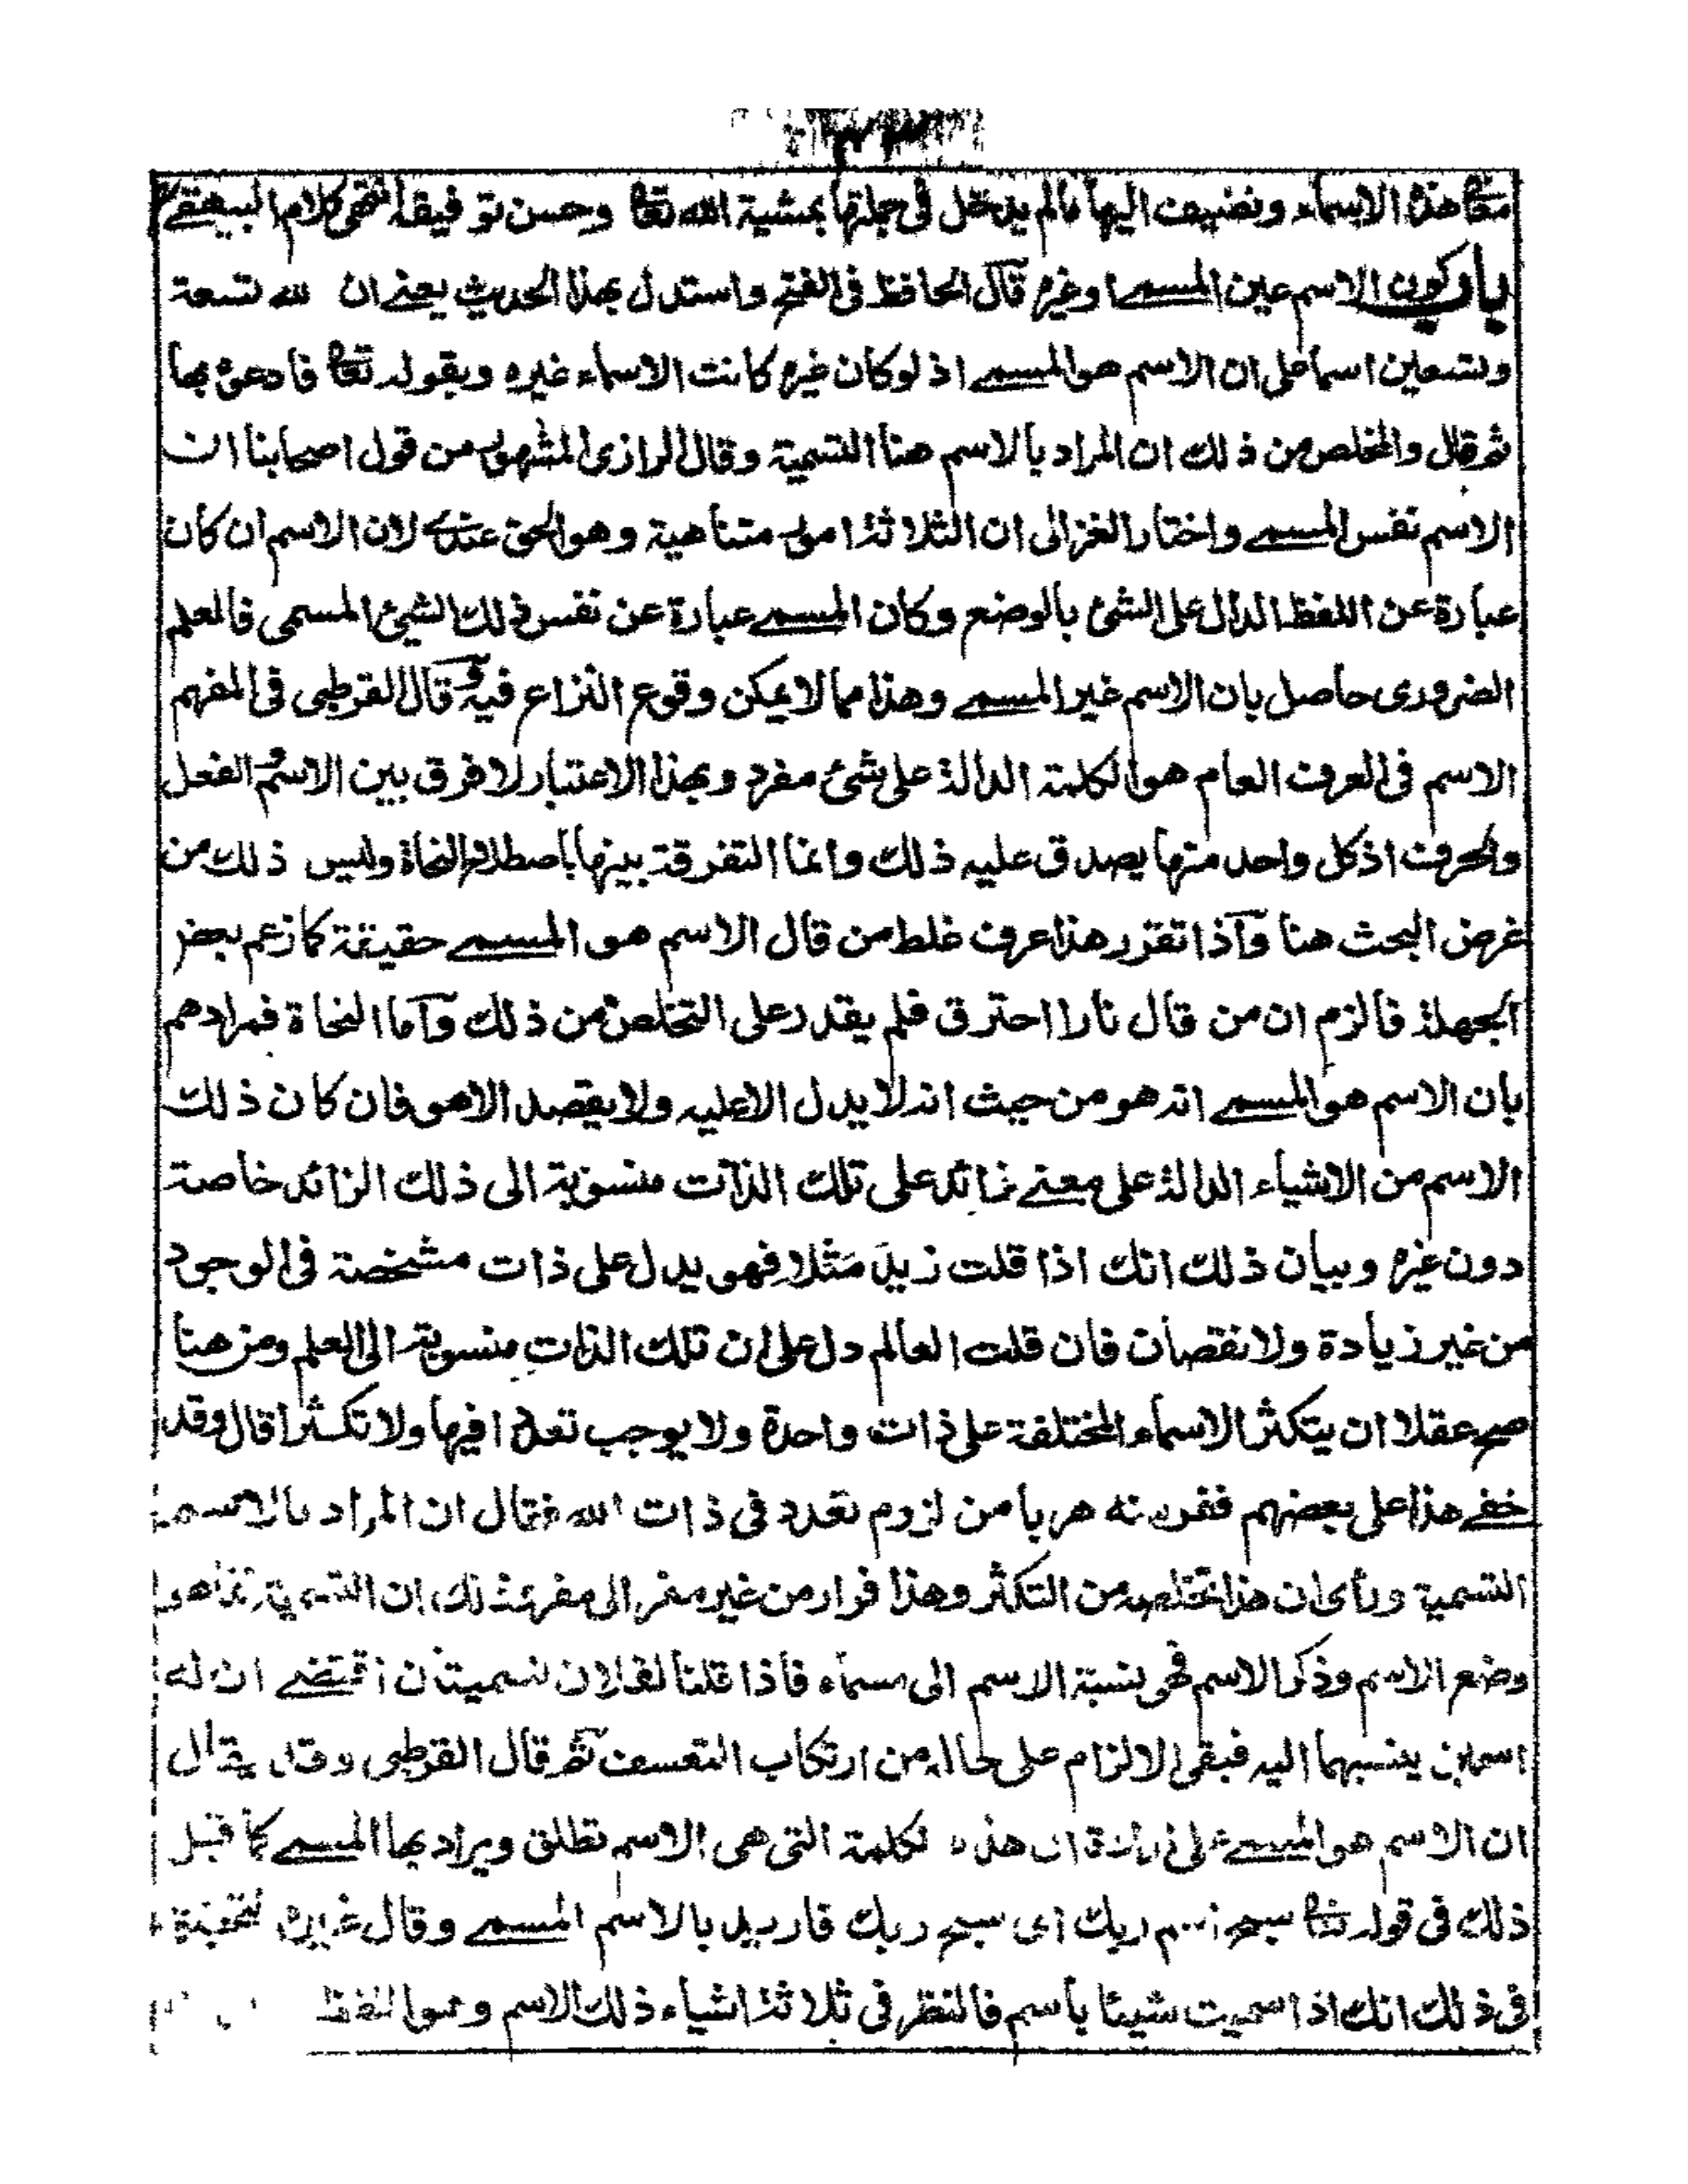 معا هذه الاسماء ونضيف اليها مالم يدخل فى جملتها بمشية الله تعا وحسن توفيقه انتهى كلام البيهقے
باب كون الاسم عين المسمے او غيره قال الحافظ فى الفتح واستدل بهذا الحديث يعنے ان لله تسعة
وتسعين اسما على ان الاسم هو المسمے اذ لو كان غيره كانت الاسماء غيره وبقوله تعا فادعوه بها
ثم قال والمخلص من ذلك ان المراد بالاسم هنا التسمية وقال الرازى المشهور من قول اصحابنا ان
الاسم نفس المسمے واختار الغزالى ان الثلاثة امور متناهية وهو الحق عندے لان الاسم ان كان
عبارة عن اللفظ الدال على الشئ بالوضع وكان المسمے عبارة عن نفس ذلك الشيئ المسمى فالعلم
الضرورى حاصل بان الاسم غير المسمے وهذا مما لا يمكن وقوع النزاع فيه وقال القرطبى فى المفهم
الاسم فى العرف العام هو الكلمة الدالة على شئ مفرد وبهذا الاعتبار لا فرق بين الاسم والفعل
والحرف اذ كل واحد منها يصدق عليه ذلك وانما التفرقة بينها باصطلاح النحاة وليس ذلك من
غرض البحث هنا وآذا تقرر هذا عرف غلط من قال الاسم هو المسمے حقيقة كما زعم بعض
الجهلة فالزم ان من قال نارا احترق فلم يقدر على التخلص من ذلك وآما النحاة فمرادهم
بان الاسم هو المسمے انه هو من حيث انه لا يدل الا عليه ولا يقصد الا هو فان كان ذلك
الاسم من الاشياء الدالة على معنے زائد على تلك الذات منسوبة الى ذلك الزائد خاصة
دون غيره وبيان ذلك انك اذا قلت زيد مثلا فهو يدل على ذات مشخصة فى الوجود
من غير زيادة ولا نقصان فان قلت العالم دل على ان تلك الذات منسوبة الى العلم ومن هنا
صح عقلا ان يتكثر الاسماء المختلفة على ذات واحدة ولا يوجب تعددا فيها ولا تكثرا قال وقد
خفے هذا على بعضهم ففر منه هربا من لزوم تعدد فى ذات الله فقال ان المراد بالاسم
التسمية ورأى ان هذا يخلصه من التكثر وهذا فرار من غير مفر الى مفر وذلك ان التسمية انما هو
وضع الاسم وذكر الاسم فهى نسبة الاسم الى مسماه فاذا قلنا لفلان تسميتان اقتضے ان له
اسمين ينسبهما اليه فبقى الالزام على حاله من ارتكاب التعسف ثم قال القرطبى وقد يقال
ان الاسم هو المسمے على ارادة ان هذه الكلمة التى هى الاسم تطلق ويراد بها المسمے كما قيل
ذلك فى قوله تعا سبح اسم ربك اى سبح ربك فاريد بالاسم المسمے وقال غيره
فى ذلك انك اذا سميت شيئا باسم فالنظر فى ثلاثة اشياء ذلك الاسم وهو اللفظ